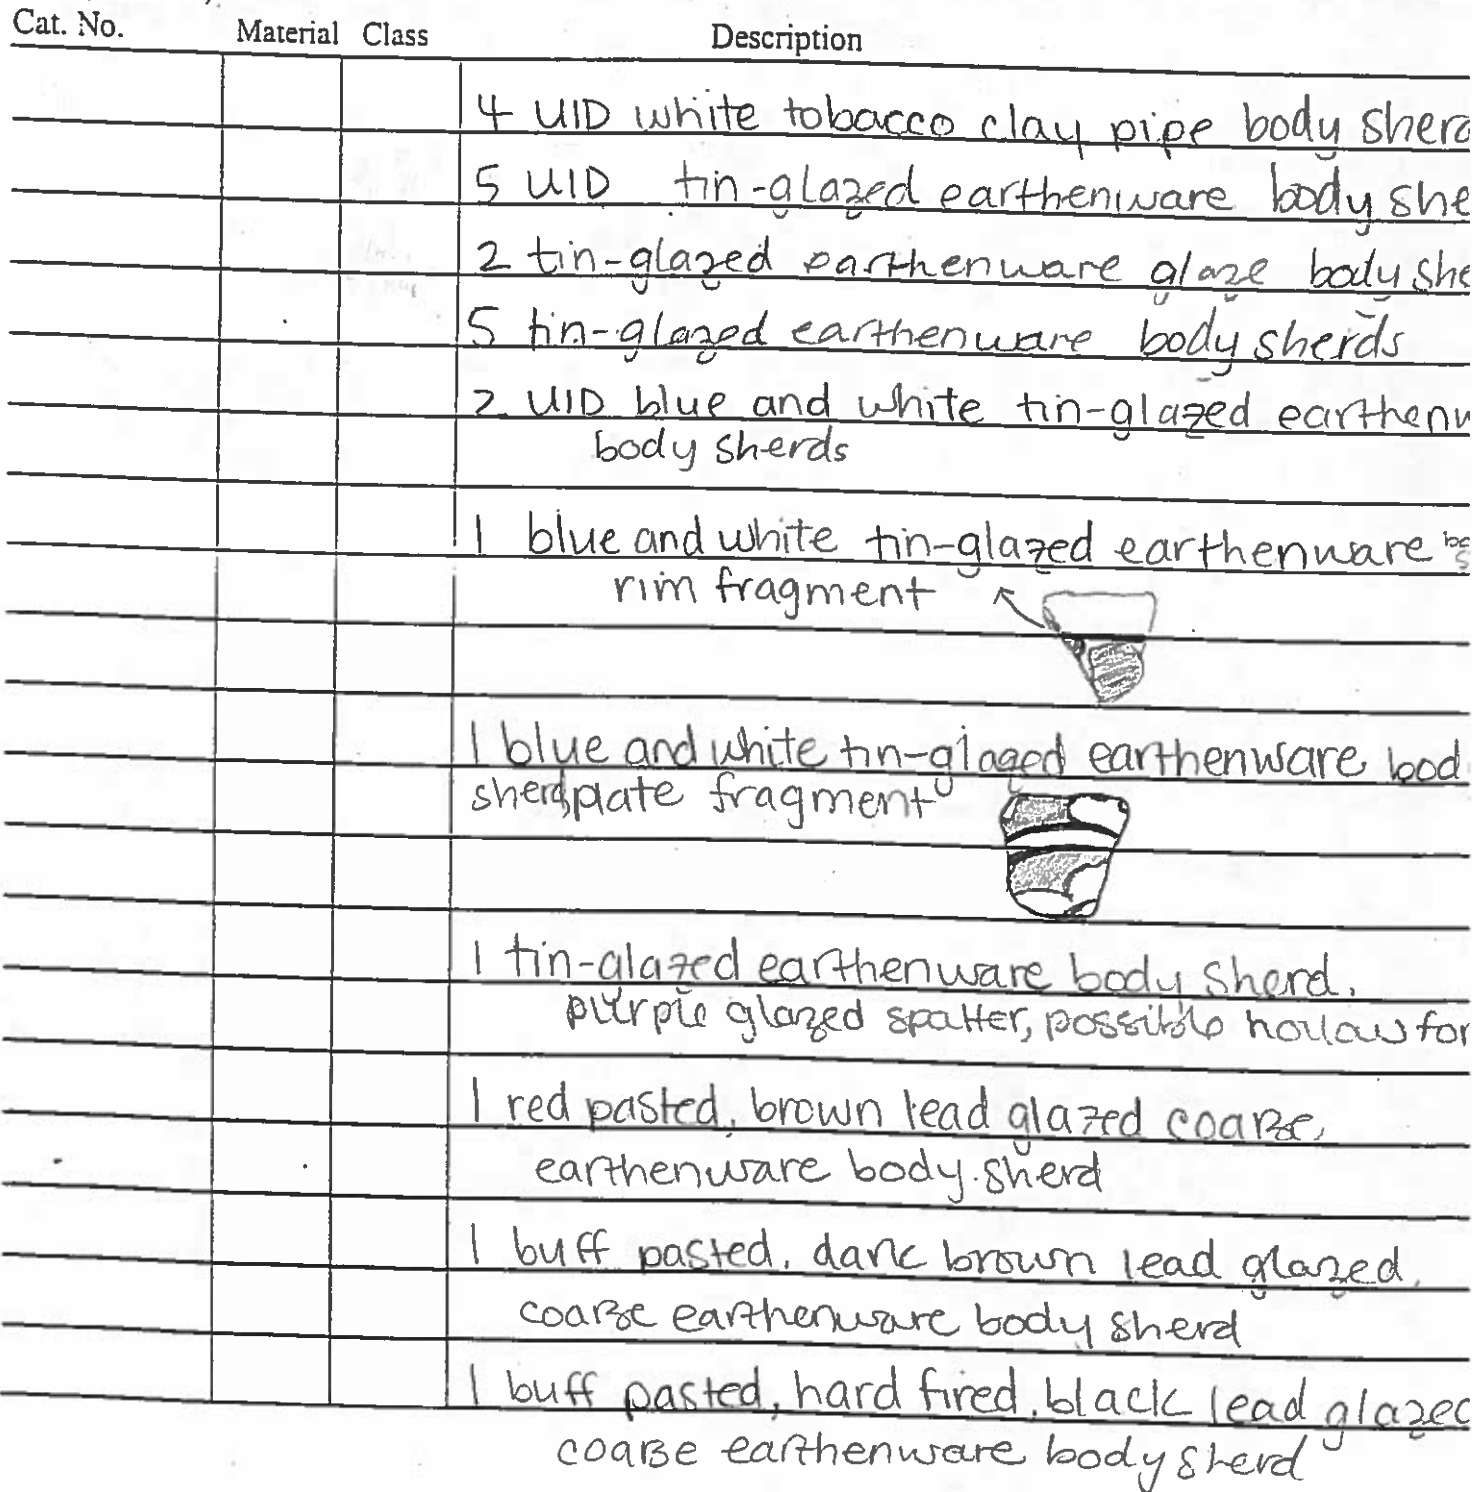 Cat. No. Material Class Description
4 UID white tobacco clay pipe body sherd
5 UID tin-glazed earthenware body she
2 tin-glazed earthenware glaze body she
5 tin-glazed earthenware body sherds
2 UID blue and white tin-glazed earthenw
body sherds
1 blue and white tin-glazed earthenware
rim fragment
1 blue and white tin-glazed earthenware bod
sherd, plate fragment
1 tin-glazed earthenware body sherd,
purple glazed spatter, possible hollow for
1 red pasted, brown lead glazed coarse
earthenware body sherd
1 buff pasted, dark brown lead glazed,
coarse earthenware body sherd
1 buff pasted, hard fired, black lead glazed
coarse earthenware body sherd